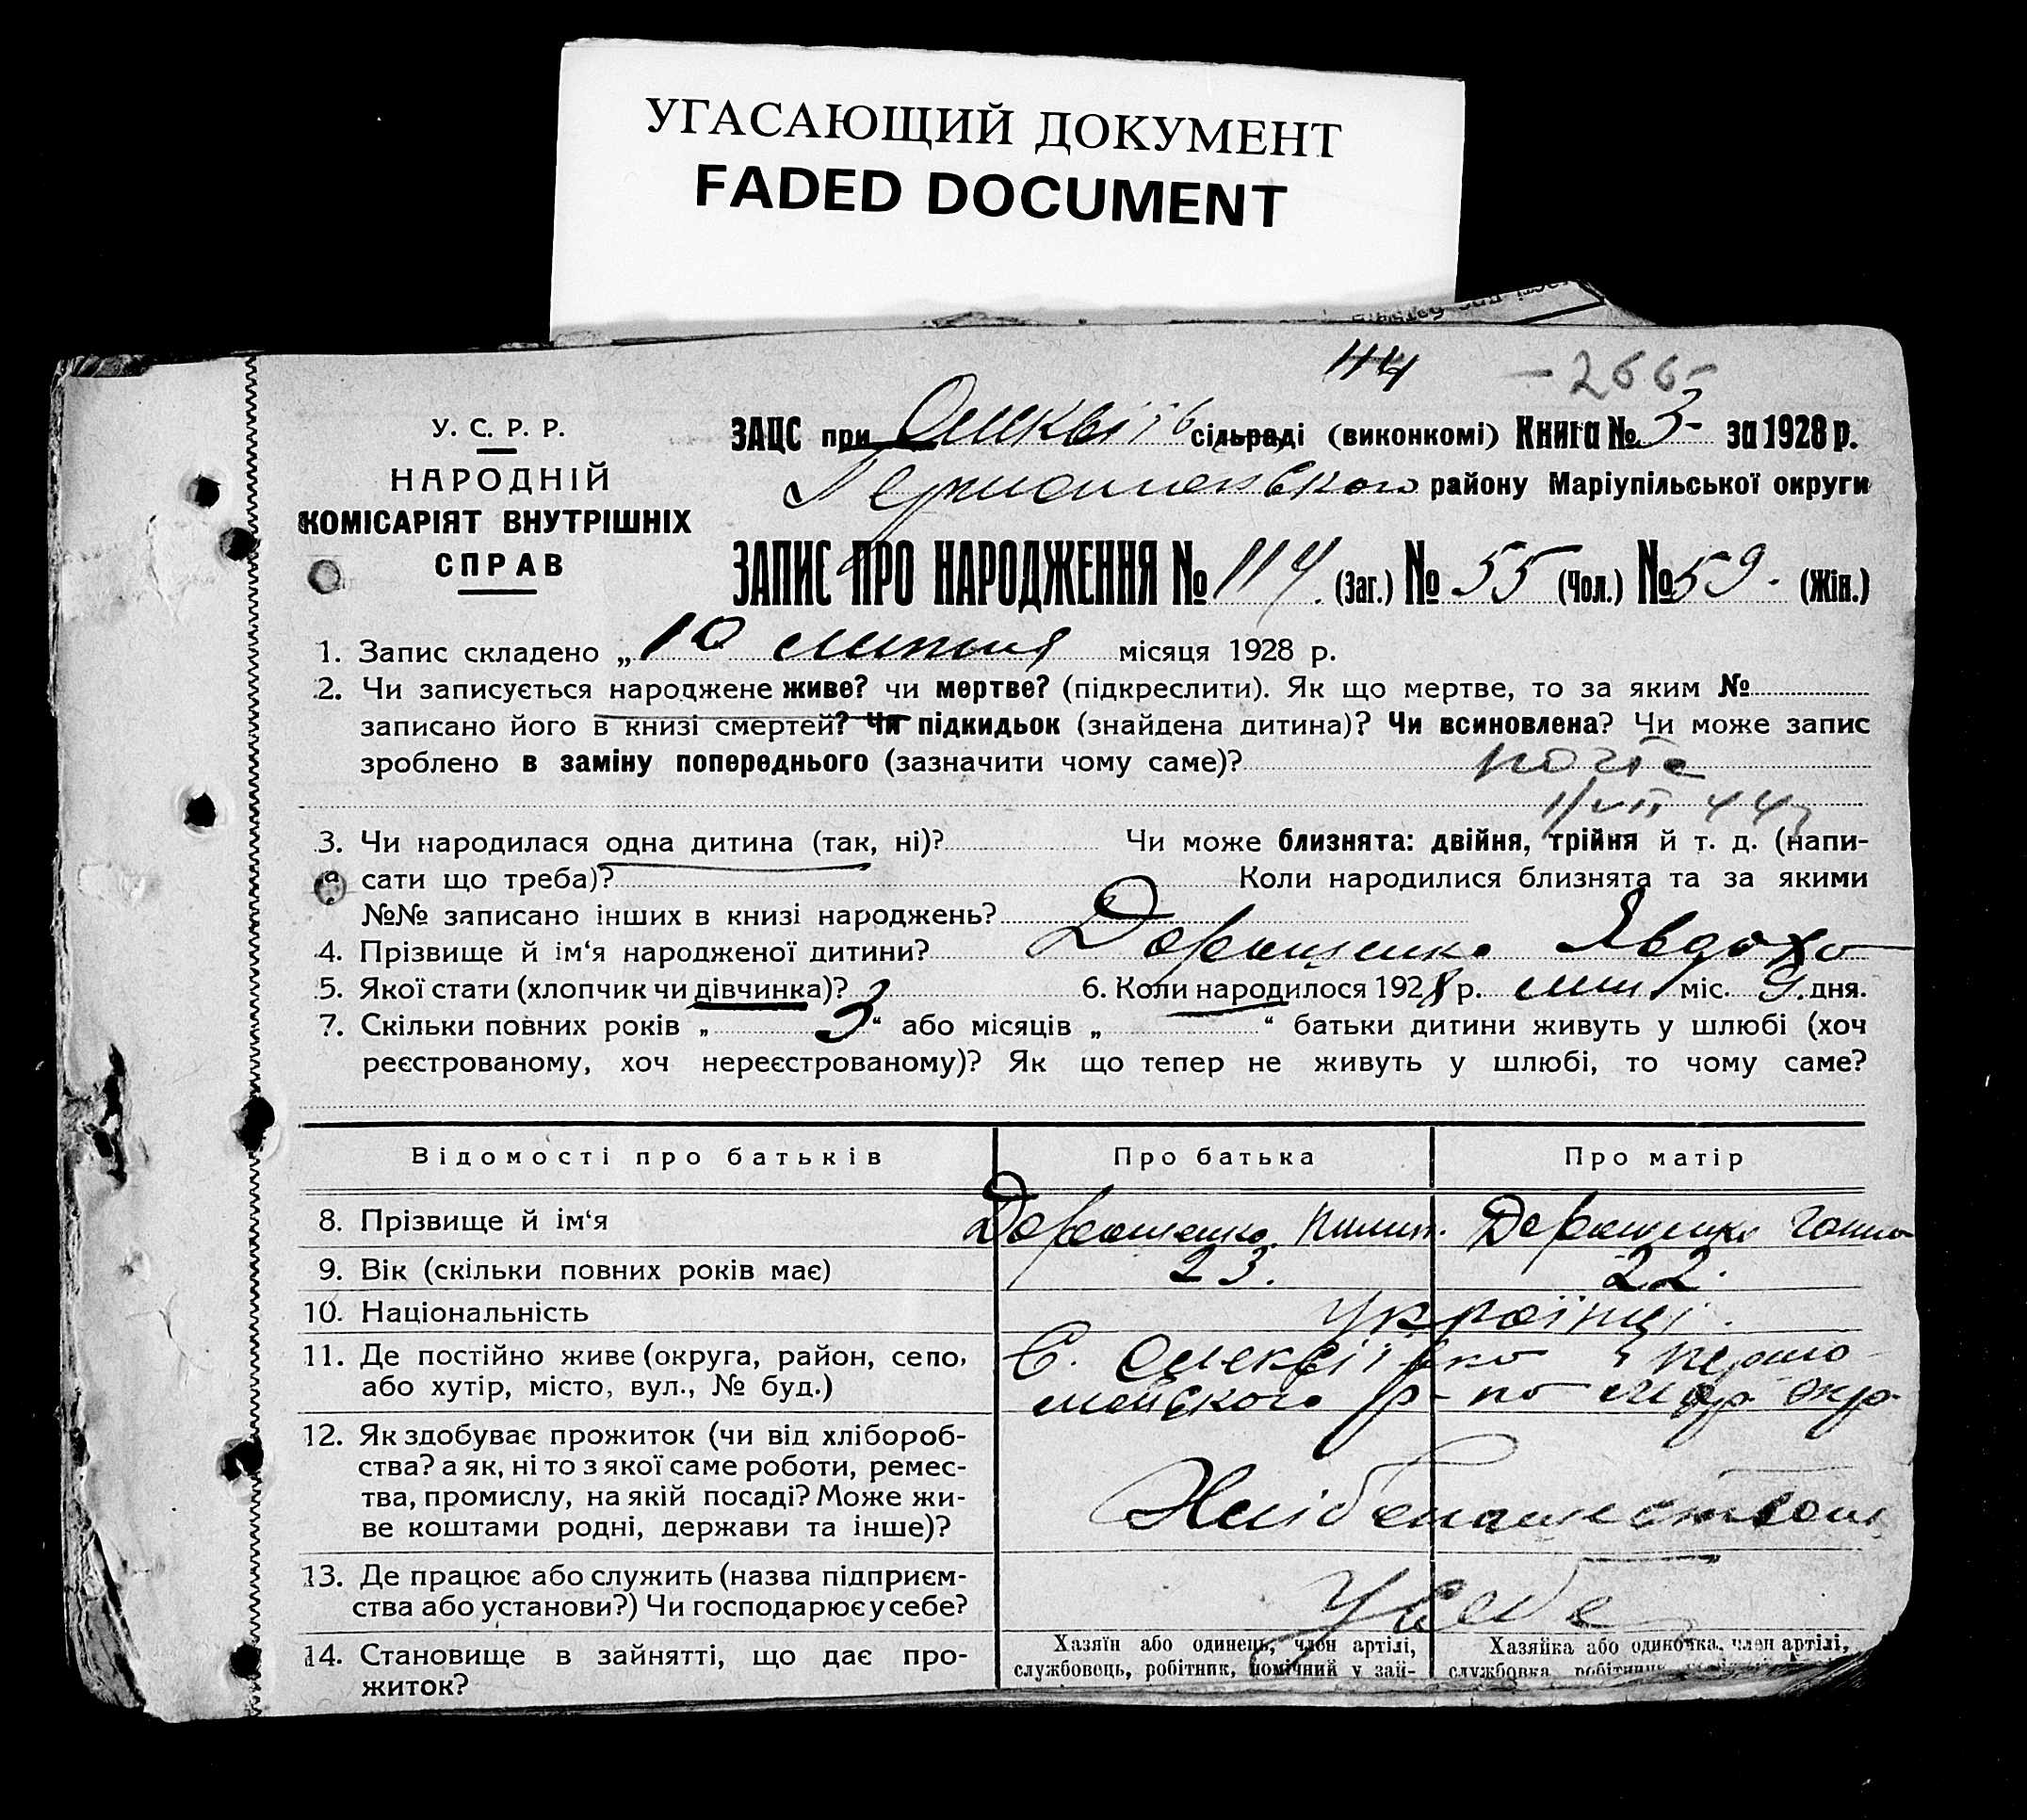 УГАСАЮЩИЙ ДОКУМЕНТ
FADED DOCUMENT
114 – 2665
У. С. Р. Р.
НАРОДНІЙ
КОМІСАРІЯТ ВНУТРІШНІХ
СПРАВ
ЗАЦС при сільраді (виконкомі) Книга № 3 - за 1928 р.
району Маріупільської округи
ЗАПИС ПРО НАРОДЖЕННЯ № 114 (Заг.) № 55 (Чол.) № 59. (Жін.)
1. Запис складено „ 10 липня місяця 1928 р.
2. Чи записується народжене живе? чи мертве? (підкреслити). Як що мертве, то за яким №
записано його в книзі смертей? Чи підкидьок (знайдена дитина)? Чи всиновлена? Чи може запис
зроблено в заміну попереднього (зазначити чому саме)?
1/VII 44
3. Чи народилася одна дитина (так, ні)? Чи може близнята: двійня, трійня й т. д. (напи-
сати що треба)? Коли народилися близнята та за якими
№№ записано інших в книзі народжень?
4. Прізвище й ім‘я народженої дитини? Дорошенко Явдоха
5. Якої стати (хлопчик чи дівчинка)? 6. Коли народилося 1928 р. лип міс. 9. дня.
7. Скільки повних років „ 3 “ або місяців „ “ батьки дитини живуть у шлюбі (хоч
реєстрованому, хоч нереєстрованому)? Як що тепер не живуть у шлюбі, то чому саме?
Відомості про батьків Про батька Про матір
8. Прізвище й ім‘я Дорошенко Пилип. Дорошенко Ганна
9. Вік (скільки повних років має) 23. 22.
10. Національність українці.
11. Де постійно живе (округа, район, село,
або хутір, місто, вул., № буд.)
12. Як здобуває прожиток (чи від хлібороб-
ства? а як, ні то з якої саме роботи, ремес-
тва, промислу, на якій посаді? Може жи-
ве коштами родні, держави та інше)?
Хлібопашеством
13. Де працює або служить (назва підприєм-
ства або установи?) Чи господарює у себе?
У себе
14. Становище в зайнятті, що дає про-
житок?
Хазяїн або одинець, член артілі,
службовець, робітник, помічний у зай-
Хазяйка або одиночка, член артілі,
службовка, робітниця